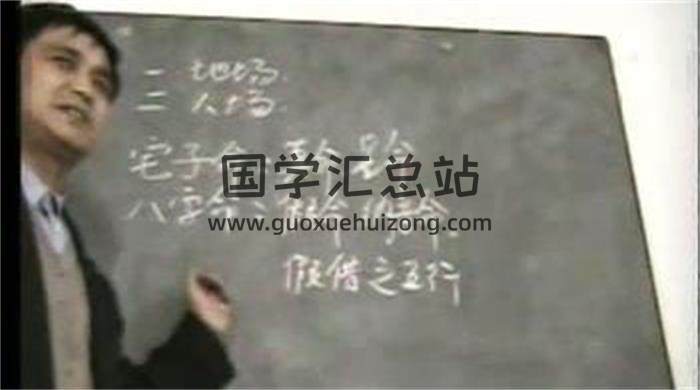 一 地场.
二 人场.
宅子命
国学汇总站
八字命
www.guoxuehuizong.com
假借之五行